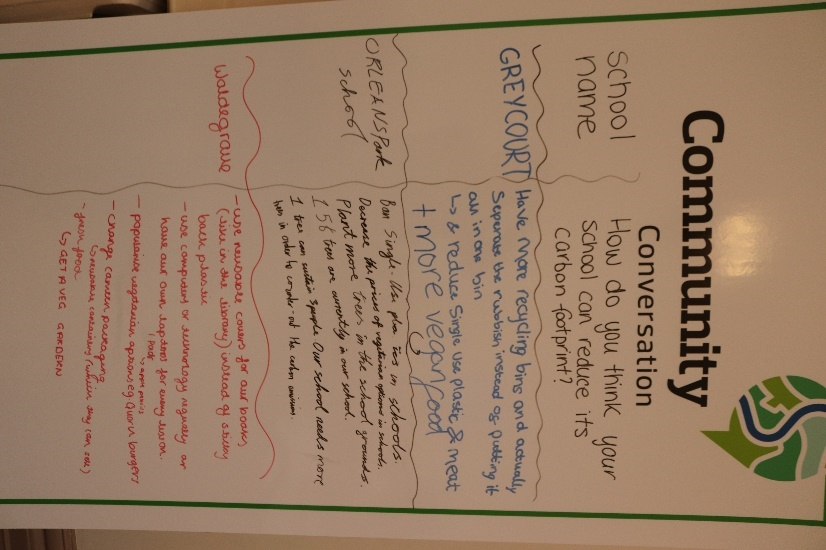 Community
Conversation
School
name
How do you think your
school can reduce its
carbon footprint?
GREYCOURT
Have more recycling bins and actually
Seperate the rubbish instead of putting it
all in one bin
↳ & reduce Single use plastic & meat
+ more vegan food
ORLEANS Park
School
Ban Single-Use plastics in schools.
Decrease the prices of vegetarian options in schools.
Plant more trees in the school grounds.
156 trees are currently in our school.
1 tree can sustain 2 people Our school needs more
trees in order to counter-out the carbon emissions.
Waldegrave
- use reusable covers for our books
(like in the library) instead of sticky
back plastic
- use computers or technology regularly or
have our own laptops for every lesson.
- popularise vegetarian options eg Quorn burgers
- change canteen packaging
↳ reusable containers (which they can sell)
- fresh food
↳ GET A VEG GARDERN